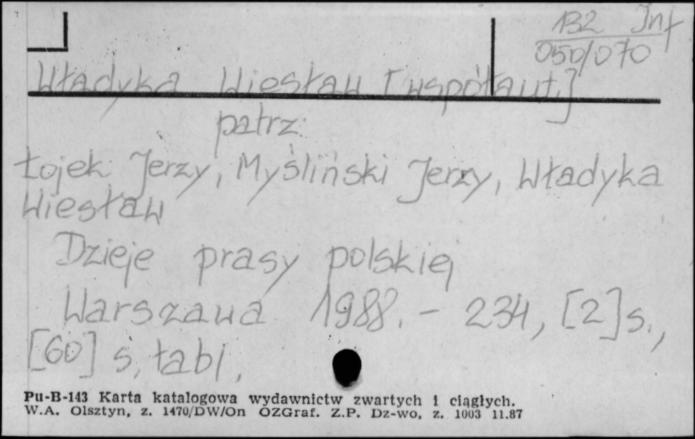 132 Inf
050/070
Władyka Wiesław [współaut.]
patrz:
Łojek Jerzy, Myśliński Jerzy, Władyka
Wiesław
Dzieje prasy polskiej
Warszawa 1988. - 234, [2] s.,
[60] s. tabl.
Pu-B-143 Karta katalogowa wydawnictw zwartych i ciągłych.
W.A. Olsztyn, z. 1470/DW/On OZGraf. Z.P. Dz-wo, z. 1003 11.87